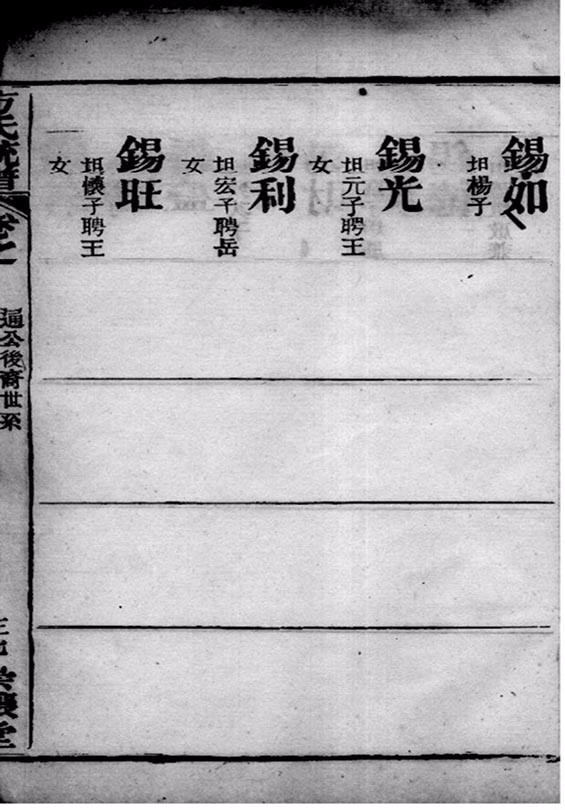 錫如
坦楊子
錫光
坦元子聘王
女
錫利
坦宏子聘岳
女
錫旺
坦懷子聘王
女
方氏統譜
卷之
逼公後裔世系